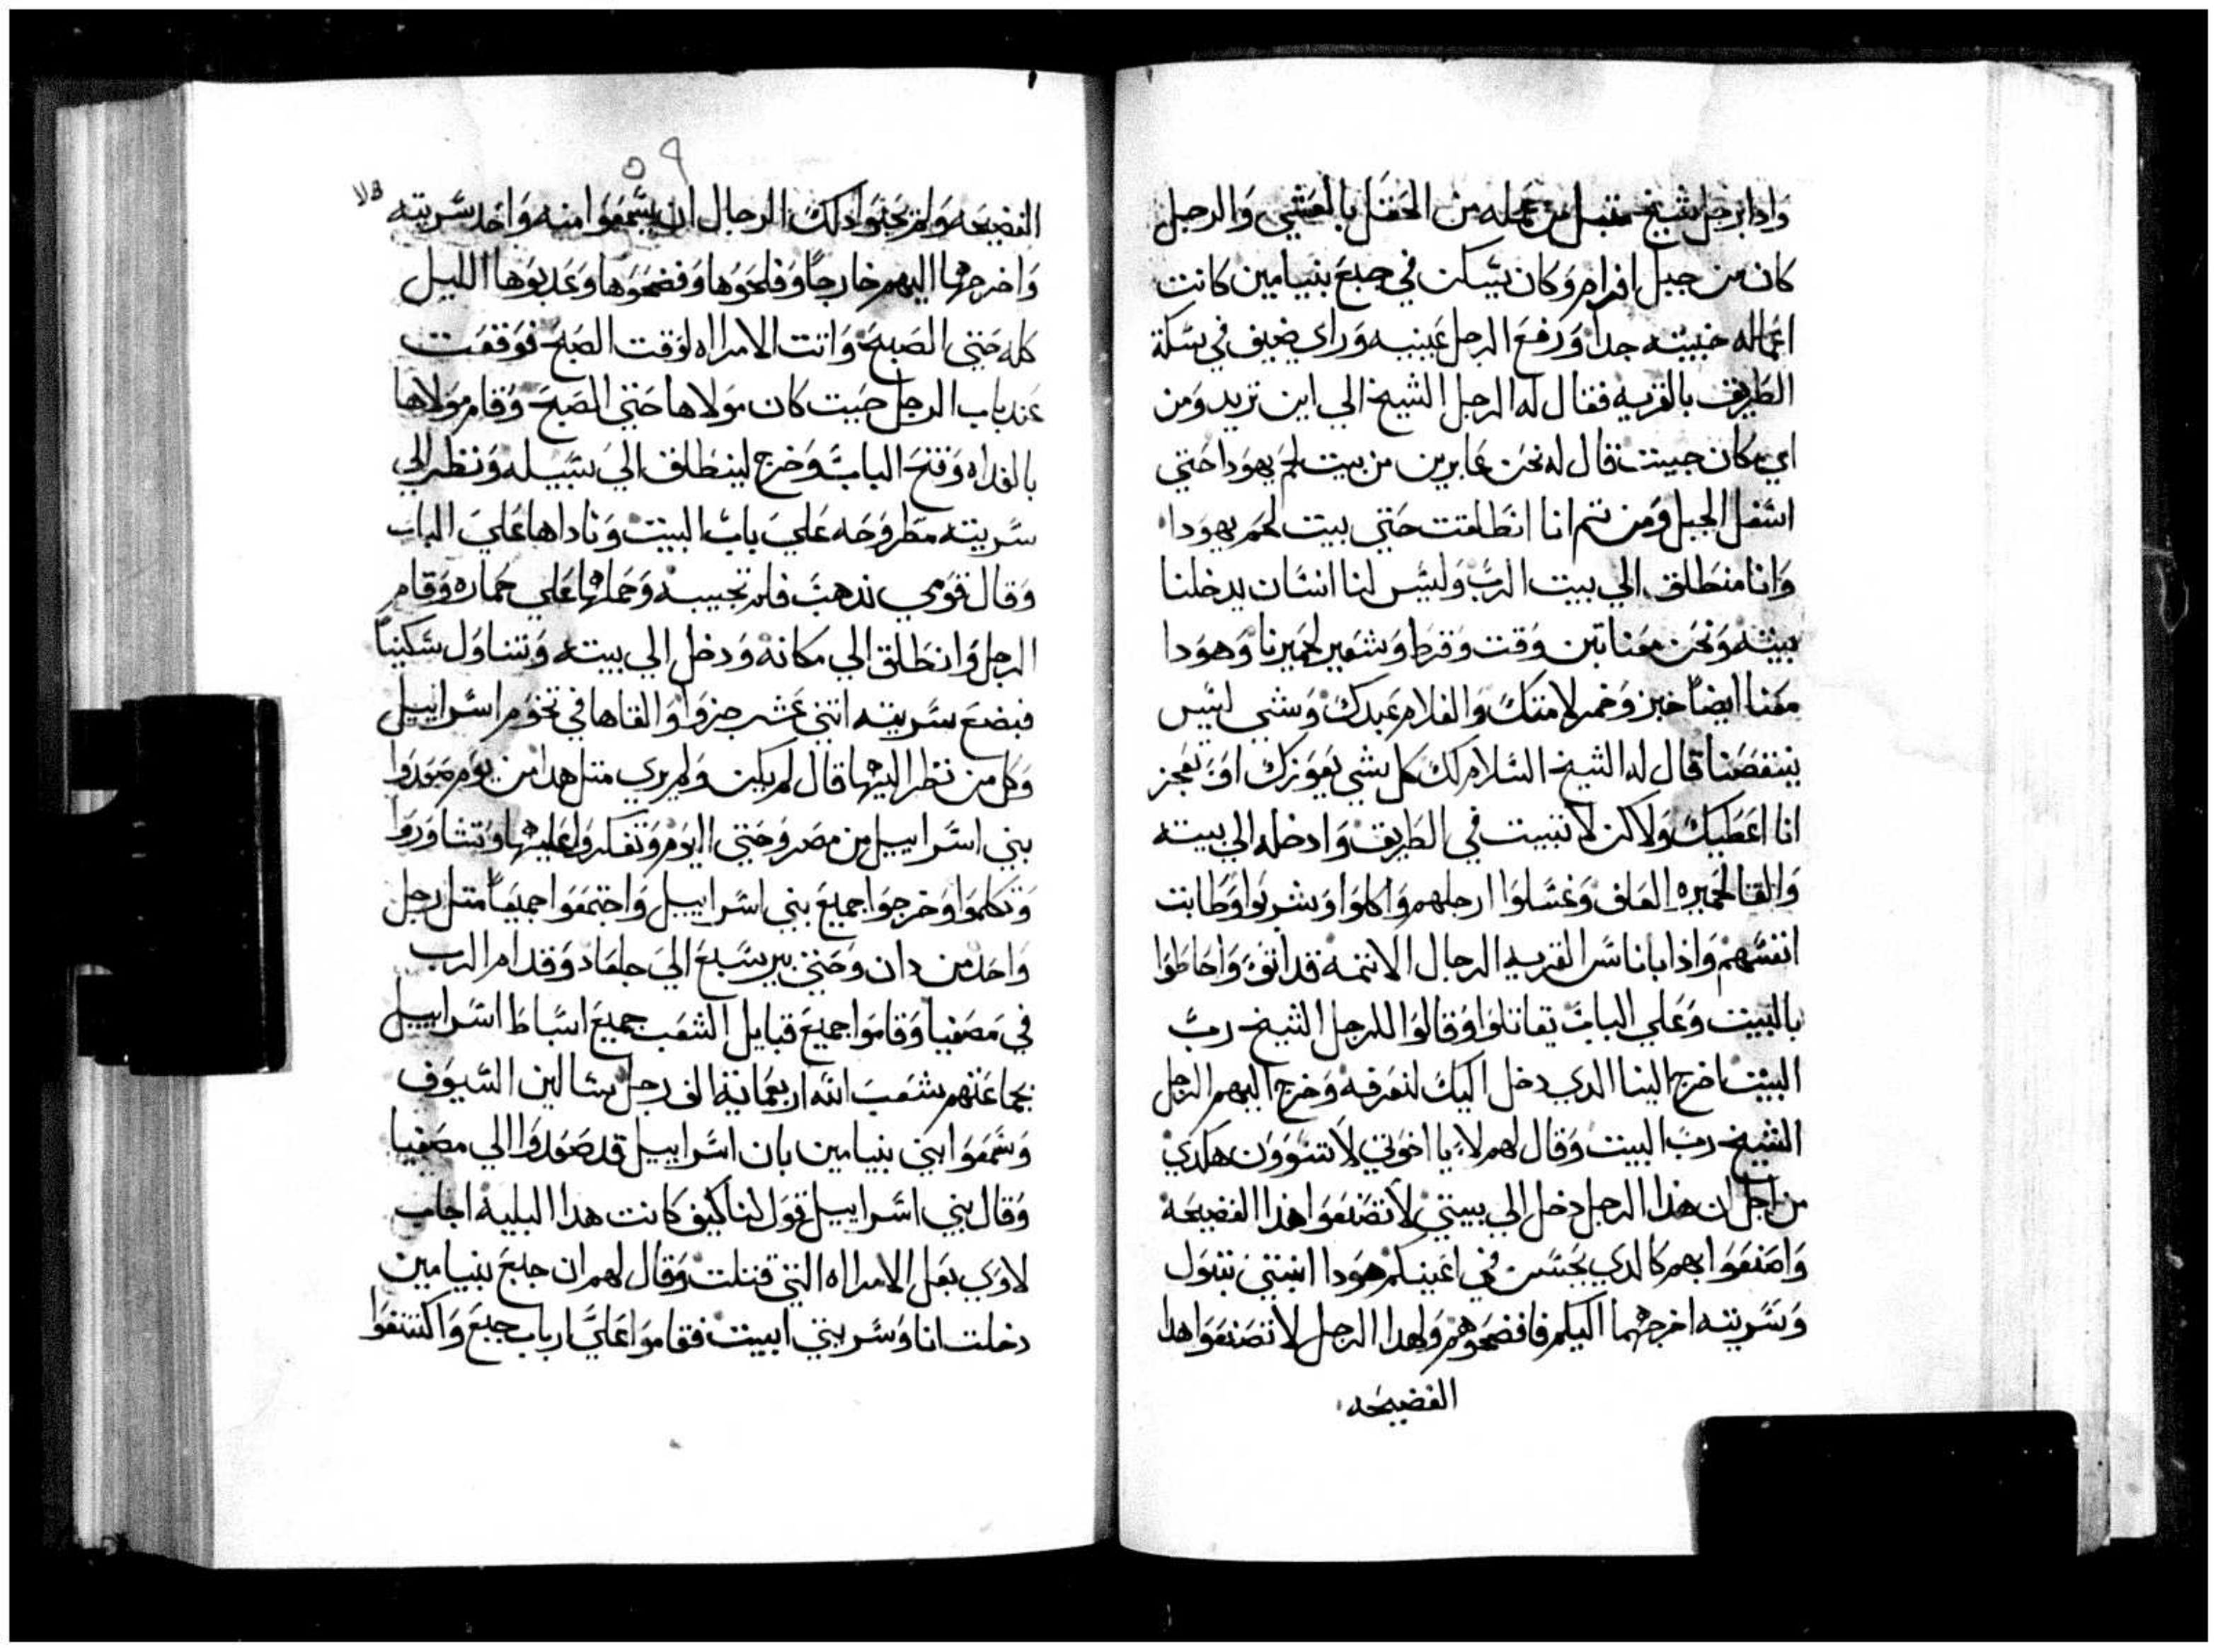 وادا برجل شيخ مقبل من عمله من الحقل بالعشي والرجل
كان من جبل افرام وكان يسكن في جبع بنيامين كانت
اعماله خبيثه جدا ورفع الرجل عينيه وراي ضيف في سكة
الطريق بالقريه فقال له الرجل الشيخ الي اين تريد ومن
اي مكان جييت قال له نحن عابرين من بيت لحم يهودا حتي
اسفل الجبل ومن تم انا انطلقت حتي بيت لحم يهودا
وانا منطلق الي بيت الرب وليس لنا انسان يدخلنا
بيته ونحن معنا تبن وقت وقرط وشعير لحميرنا وهودا
معنا ايضا خبز وخمر لامتك والغلام عبدك وشي ليس
ينقصنا قال له الشيخ السلام لك كل شي يعوزك او تعجز
انا اعطيك ولاكن لا تبيت في الطريق وادخله الي بيته
والقا لحميره العلف وغسلوا ارجلهم واكلوا وشربوا وطابت
انفسهم واذا باناس القريه الرجال الاتمه قد اتو واحاطوا
بالبيت وعلي الباب تقاتلوا وقالوا للرجل الشيخ رب
البيت اخرج الينا الدي دخل اليك لنعرفه وخرج اليهم الرجل
الشيخ رب البيت وقال لهم لا يا اخوتي لا تسوون هكدي
من اجل ان هذا الرجل دخل الي بيتي لا تصنعوا هذا الفضيحه
واصنعوا بهم كالدي يحسن في اعينكم هودا ابنتي بتول
وسريته اخرجهما اليكم فافضحوهم ولهدا الرجل لا تصنعوا هدا
الفضيحه
٥٩
الفضيحه ولم يحبوا دلك الرجال ان يسمعوا منه واخد سريته
واخرجها اليهم خارجا وفضحوها وعدبوها الليل
كله حتي الصبح واتت الامراه لوقت الصبح فوقفت
عند باب الرجل حيت كان مولاها حتي الصبح وقام مولاها
بالغداه وفتح الباب وخرج لينطلق الي سبيله ونظر الي
سريته مطروحه علي باب البيت وناداها علي الباب
وقال قومي ندهب فلم تجيبه وحملها علي حماره وقام
الرجل وانطلق الي مكانه ودخل الي بيته وتناول سكينا
فبضع سريته اتني عشر جزوا والقاها في تخوم اسراييل
وكل من نظر اليها قال لم يكن ولم يري متل هدا من يوم صعدوا
بني اسراييل من مصر وحتي اليوم وتفكروا عليها وتشاوروا
وتكلموا وخرجوا جميع بني اسراييل واجتمعوا جميعا متل رجل
واحد من دان وحتي بير سبع الي جلعاد وقدام الرب
في مصفيا وقاموا جميع قبايل الشعب جميع اسباط اسراييل
بجماعتهم شعب الله اربعماية الف رجل سالين السيوف
وسمعوا بني بنيامين بان اسراييل قد صعدوا الي مصفيا
وقال بني اسراييل قول لنا كيف كانت هدا البلية اجاب
لاوي بعل الامراه التي قتلت وقال لهم ان جبع بنيامين
دخلت انا وسريتي ابيت فقاموا علي ارباب جبع واكتنفوا